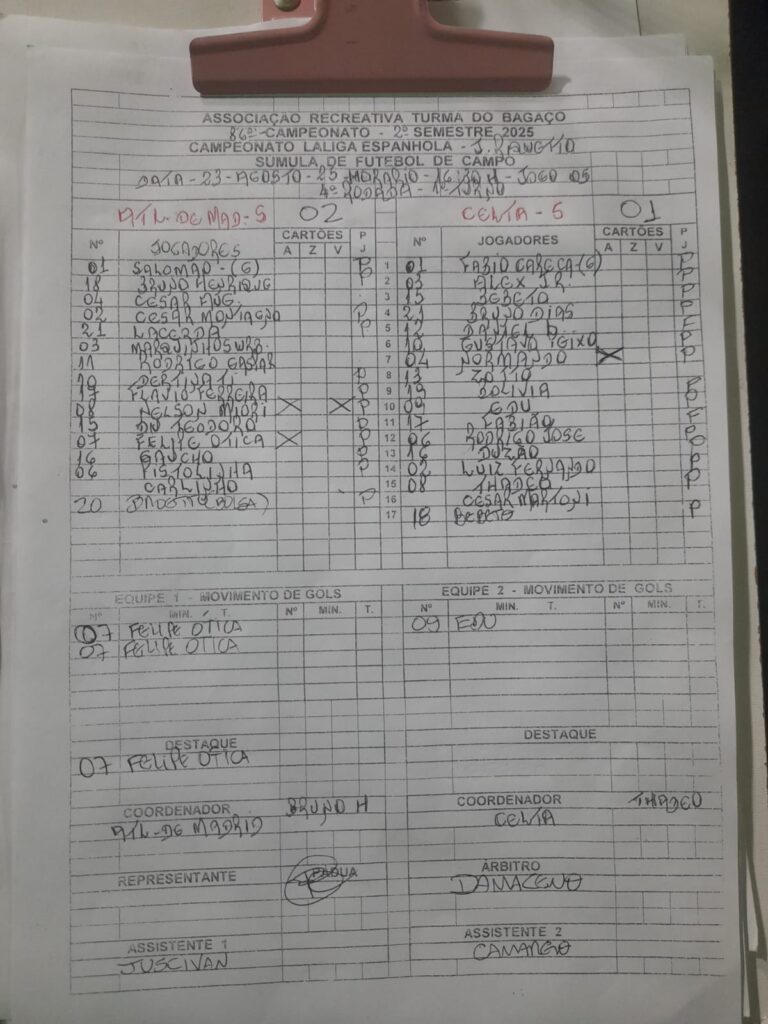 ASSOCIAÇÃO RECREATIVA TURMA DO BAGAÇO
86º CAMPEONATO - 2º SEMESTRE 2025
CAMPEONATO LALIGA ESPANHOLA - J. RANETTO
SÚMULA DE FUTEBOL DE CAMPO
DATA - 23 - AGOSTO - 25 HORARIO - 16:30 H - JOGO 05
4º RODADA - 1º TURNO
ATL. DE MAD - S 02 CELTA - S 01
Nº JOGADORES CARTÕES A Z V P J Nº JOGADORES CARTÕES A Z V P J
01 SALOMÃO - (G) P 1 01 FABIO CARECA (G) P
18 BRUNO HENRIQUE P 2 03 ALEX JR. P
04 CESAR AUG. 3 15 BEBETO P
02 CESAR MONTAGNO P 4 21 BRUNO DIAS P
21 LACERDA P 5 12 DANIEL
03 MARQUINHOS 6 10 GUSTAVO P
11 RODRIGO 7 04 NORMANDO X P
10 P 8 13
17 FLAVIO FERREIRA P 9 19 BOLIVIA
08 NELSON X X P 10 09 EDU
15 TEODORO P 11 17 FABIÃO
07 FELIPE OTICA X P 12 06 RODRIGO JOSE
16 GAUCHO P 13 16 DUZÃO P
06 PISTOLINHA P 14 02 LUIZ FERNANDO P
CARLINHO 15 08 THADEO P
20 P 16 CESAR MARTONI
17 18 BEBETO P
EQUIPE 1 - MOVIMENTO DE GOLS EQUIPE 2 - MOVIMENTO DE GOLS
Nº MIN. T. Nº MIN. T. Nº MIN. T. Nº MIN. T.
07 FELIPE OTICA 09 EDU
07 FELIPE OTICA
DESTAQUE DESTAQUE
07 FELIPE OTICA
COORDENADOR BRUNO H COORDENADOR THADEO
ATL - DE MADRID CELTA
REPRESENTANTE PADUA ÁRBITRO
DAMACENO
ASSISTENTE 1 ASSISTENTE 2
JUSCIVAN CAMARGO